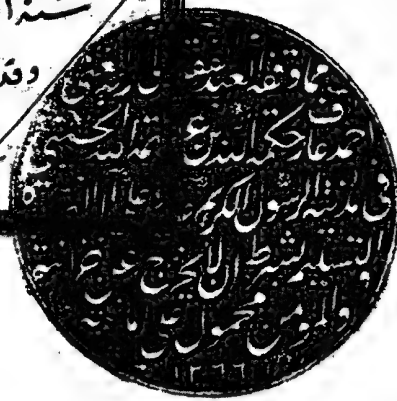 وقد
مما وقفه العبد الفقير الى ربه الغني
احمد عارف حكمة الله بن عصمة الله الحسيني
في مدينة الرسول الكريم عليه وعلى آله
التسليم بشرط ان لا يخرج عن خزانته
والمؤمن محمول على امانته
١٢٦٦